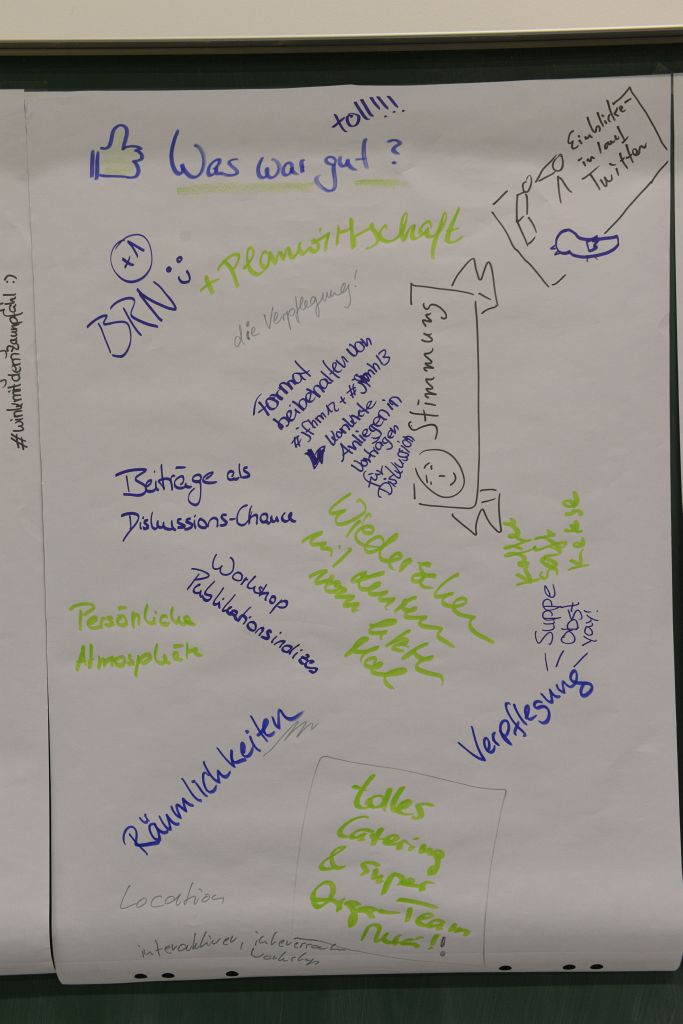 toll!!!
Was war gut?
Einblicke
in / auf
Twitter
+1
BRN :)
+ Planwirtschaft
die Verpflegung!
Stimmung
#winkmitdemzaunpfahl :)
Format
beibehalten von
#jfhm12 + #jfmh13
konkrete
Anliegen in
Vorträgen
für
Diskussion
Beiträge als
Diskussions-Chance
Wiedersehen
mit denen
vom letzten
Mal
Workshop
Publikationsindizes
Kaffee
Saft
Kekse
Suppe
Obst
yay!
Verpflegung
Persönliche
Atmosphäre
Räumlichkeiten
tolles
Catering
& super
Orga-Team
Location
interaktiver, interessanter
Workshop